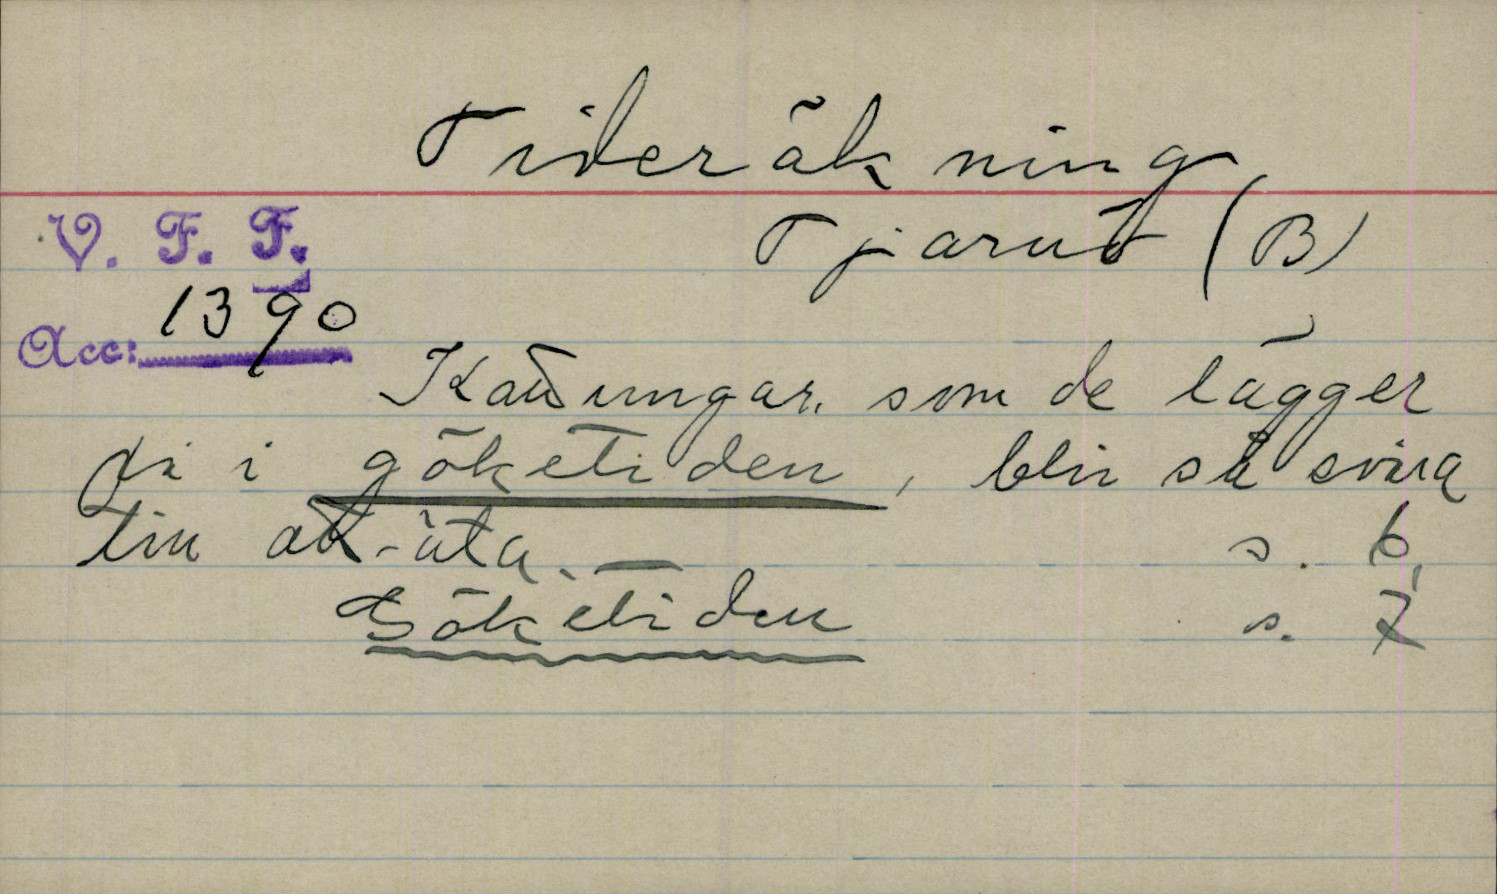 Tideräkning
V. F. F. (B)
Acc: 1390
Kattungar, som de lägger
på i göketiden, blir så svåra
till att äta. s. 6
Göketiden s. 7